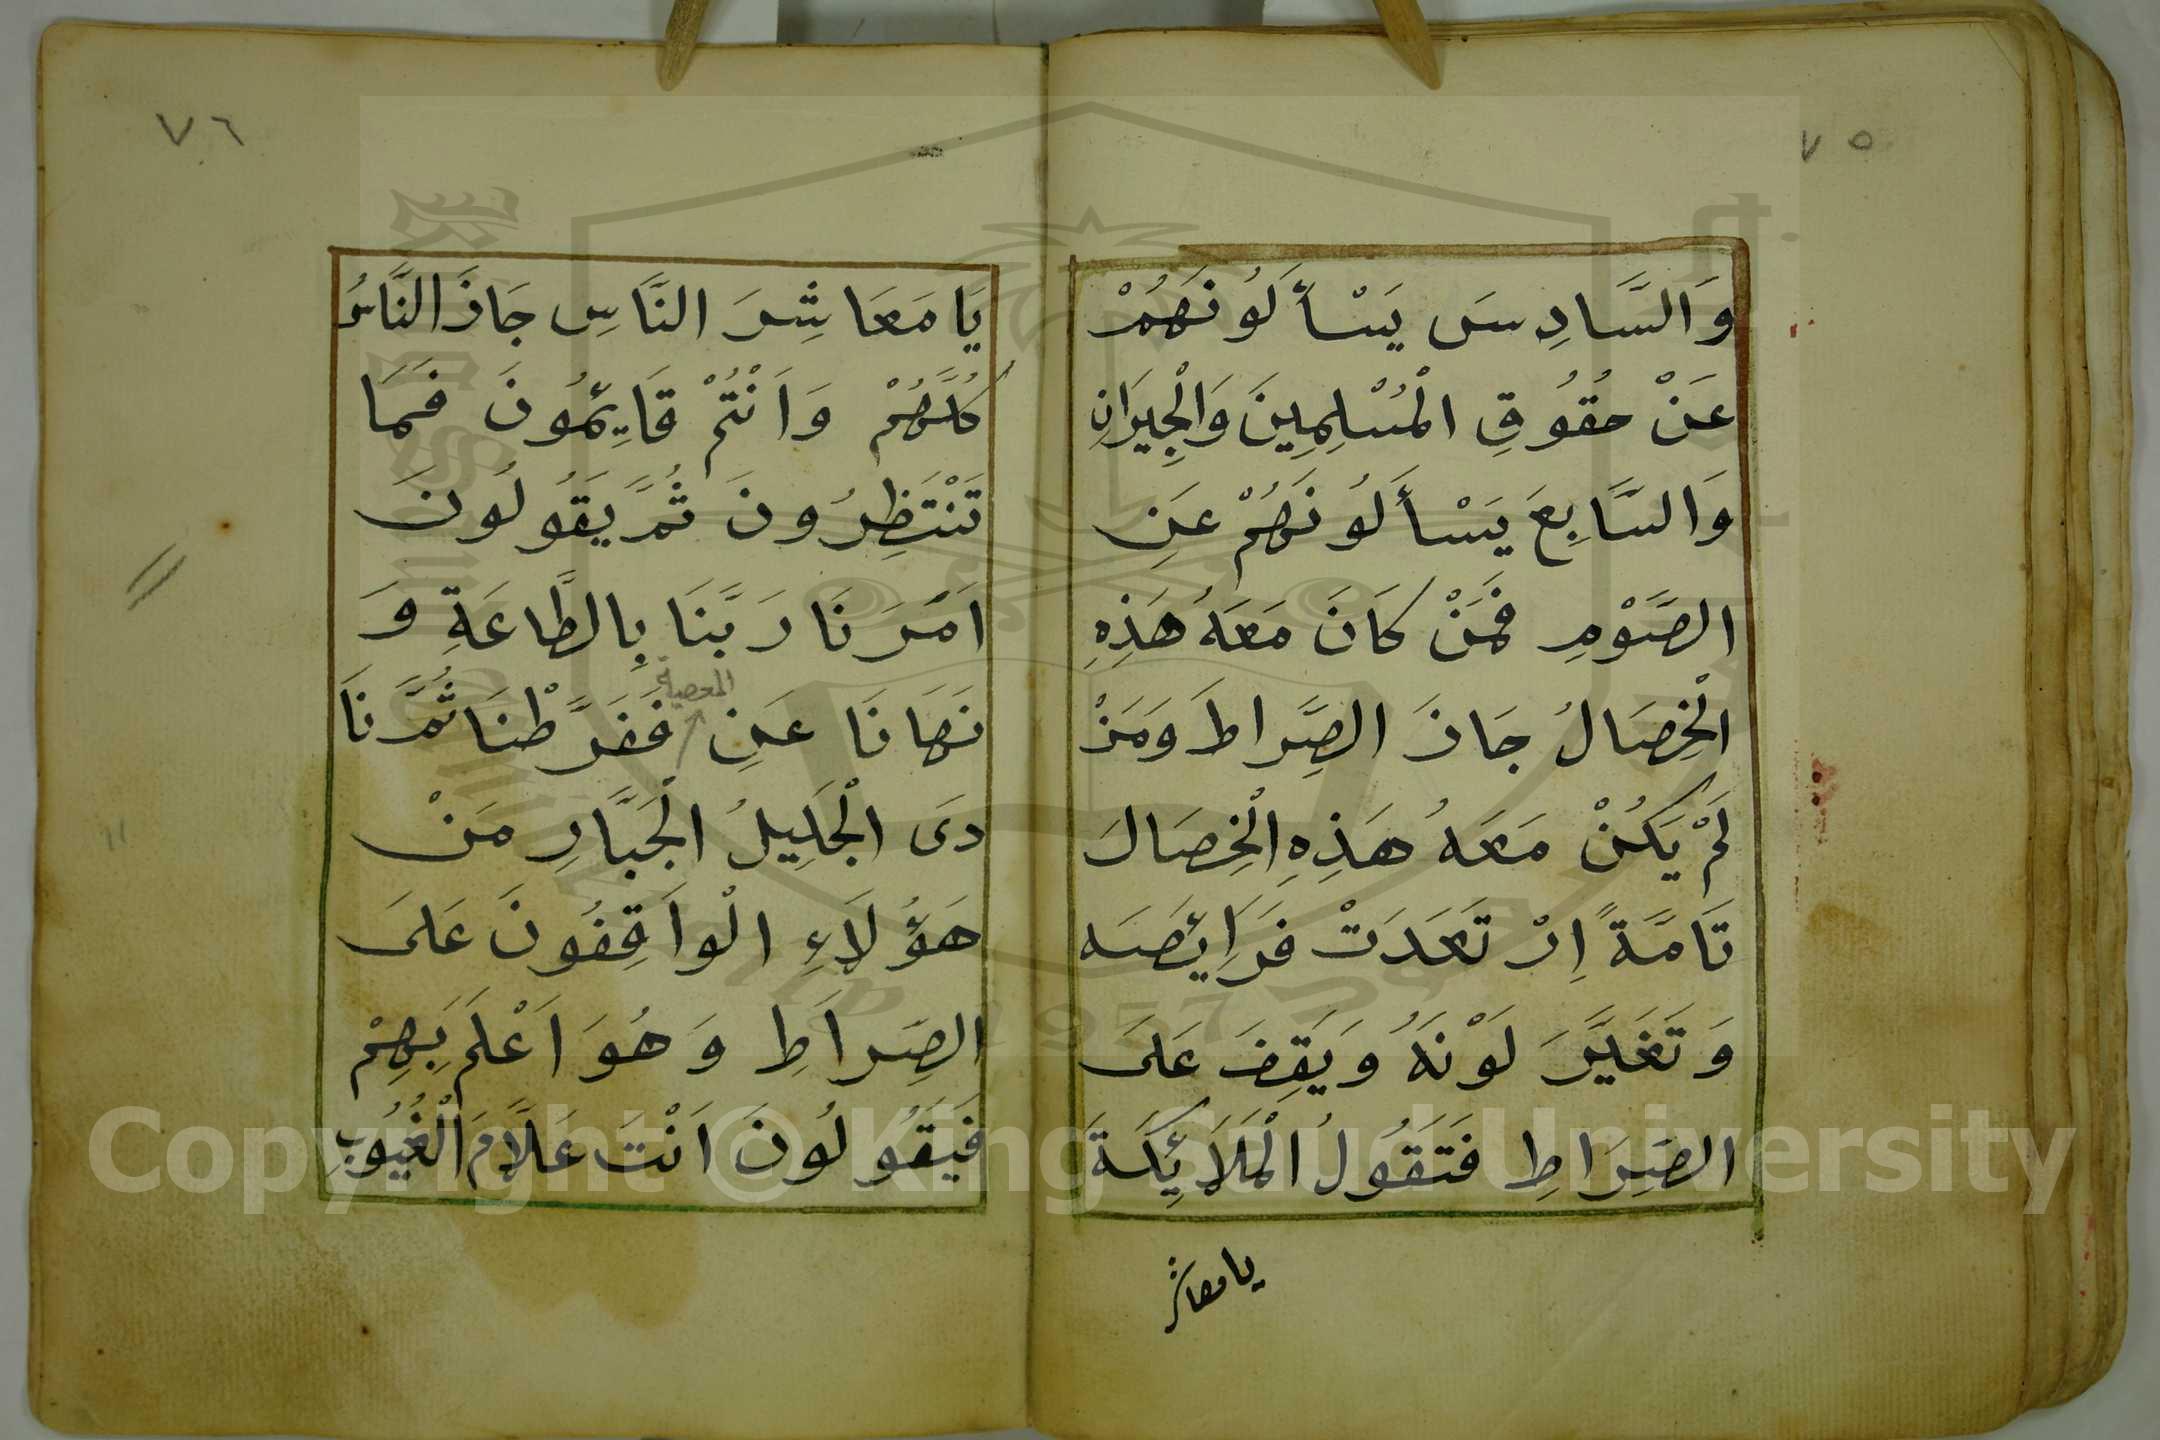 ٧٥
وَالسَّادِسَ يَسْأَلُونَهُمْ
عَنْ حُقُوقِ الْمُسْلِمِينَ وَالْجِيرَانِ
وَالسَّابِعَ يَسْأَلُونَهُمْ عَنِ
الصَّوْمِ فَمَنْ كَانَ مَعَهُ هَذِهِ
الْخِصَالُ جَازَ الصِّرَاطَ وَمَنْ
لَمْ يَكُنْ مَعَهُ هَذِهِ الْخِصَالَ
تَامَّةً اِرْتَعَدَتْ فَرَائِصَه
وَتَغَيَّرَ لَوْنَهُ وَيَقِفَ عَلَى
الصِّرَاطِ فَتَقُولُ الْمَلَائِكَةَ
يا معاشر
٧٦
يَا مَعَاشِرَ النَّاسِ جَازَ النَّاسُ
كُلَّهُمْ وَاَنْتُمْ قَايِمُونَ فَمَا
تَنْتَظِرُونَ ثُمَّ يَقُولُونَ
اَمَرَنَا رَبَّنَا بِالطَّاعَةِ وَ
نَهَانَا عَنِ المعصية فَفَرَّطْنَا ثُمَّ نَا
دَى الْجَلِيلُ الْجَبَّارِ مَنْ
هَؤُلَاءِ الْوَاقِفُونَ عَلَى
الصِّرَاطِ وَهُوَ اَعْلَم بِهِمْ
فَيَقُولُونَ اَنْتَ عَلَّامَ الْغُيُوبِ
Copyright © King Saud University
1957